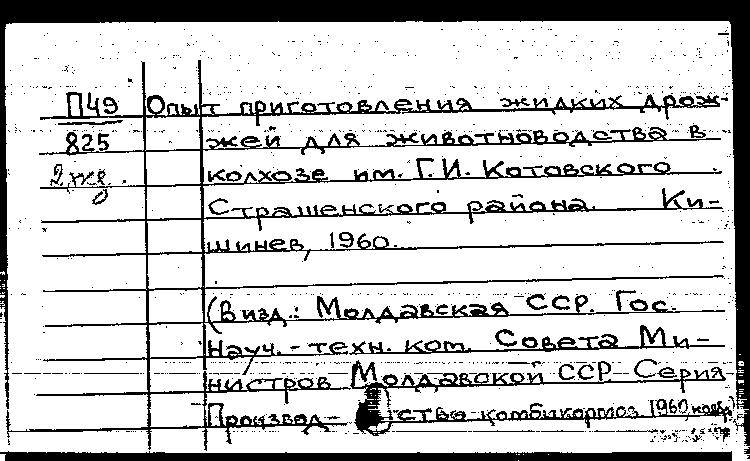 П49 Опыт приготовления жидких дрож-
825 жей для животноводства в
2 экз. колхозе им. Г.И. Котовского
Страшенского района. Ки-
шинев, 1960.
(В изд.: Молдавская ССР. Гос.
науч.-техн. ком. Совета Ми-
нистров Молдавской ССР. Серия
Производ- ство комбикормов 1960, ноябрь)